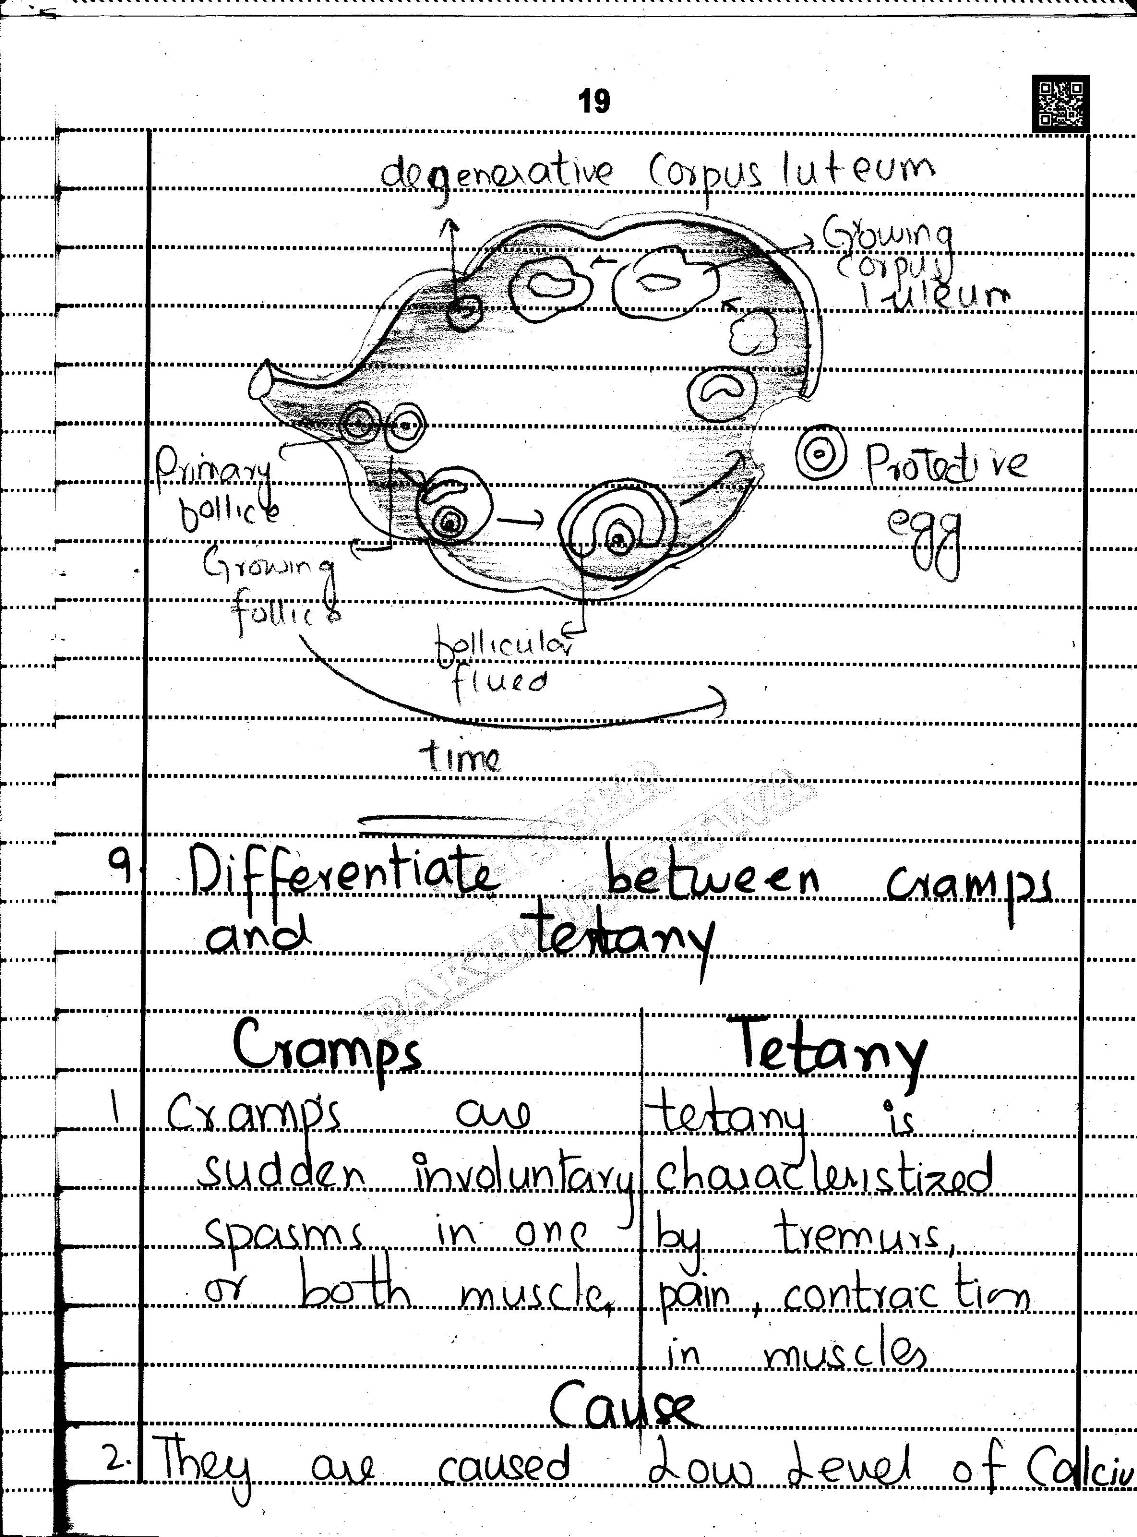 19
degenerative Corpus luteum
Growing
corpus
luteum
Primary
follicle
Protective
egg
Growing
follicle
follicular
flued
time
9. Differentiate between cramps
and tentany
Cramps Tetany
1 Cramps are tetany is
sudden involuntary characteristized
spasms in one by tremurs,
or both muscle. pain, contraction
in muscles
Cause
2. They are caused Low Level of Calciu